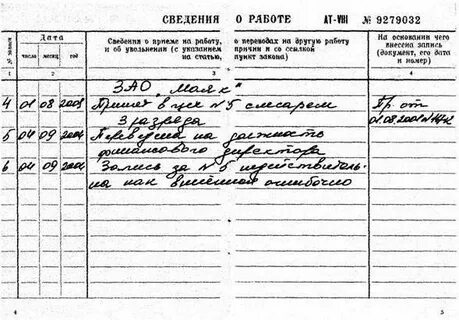 СВЕДЕНИЯ О РАБОТЕ АТ-VIII № 9279032
№ записи
Дата
число месяц год
Сведения о приеме на работу, о переводах на другую работу
и об увольнении (с указанием причин и со ссылкой
на статью, пункт закона)
На основании чего
внесена запись
(документ, его дата
и номер)
1 2 3 4
ЗАО "Маяк"
4 01 08 Принят в цех №5 слесарем Пр. от
3 разряда 01.08.2001
5 04 09 Переведен на должность
финансового директора
6 04 09 Запись за №5 недействитель-
на как внесённая ошибочно
4 5